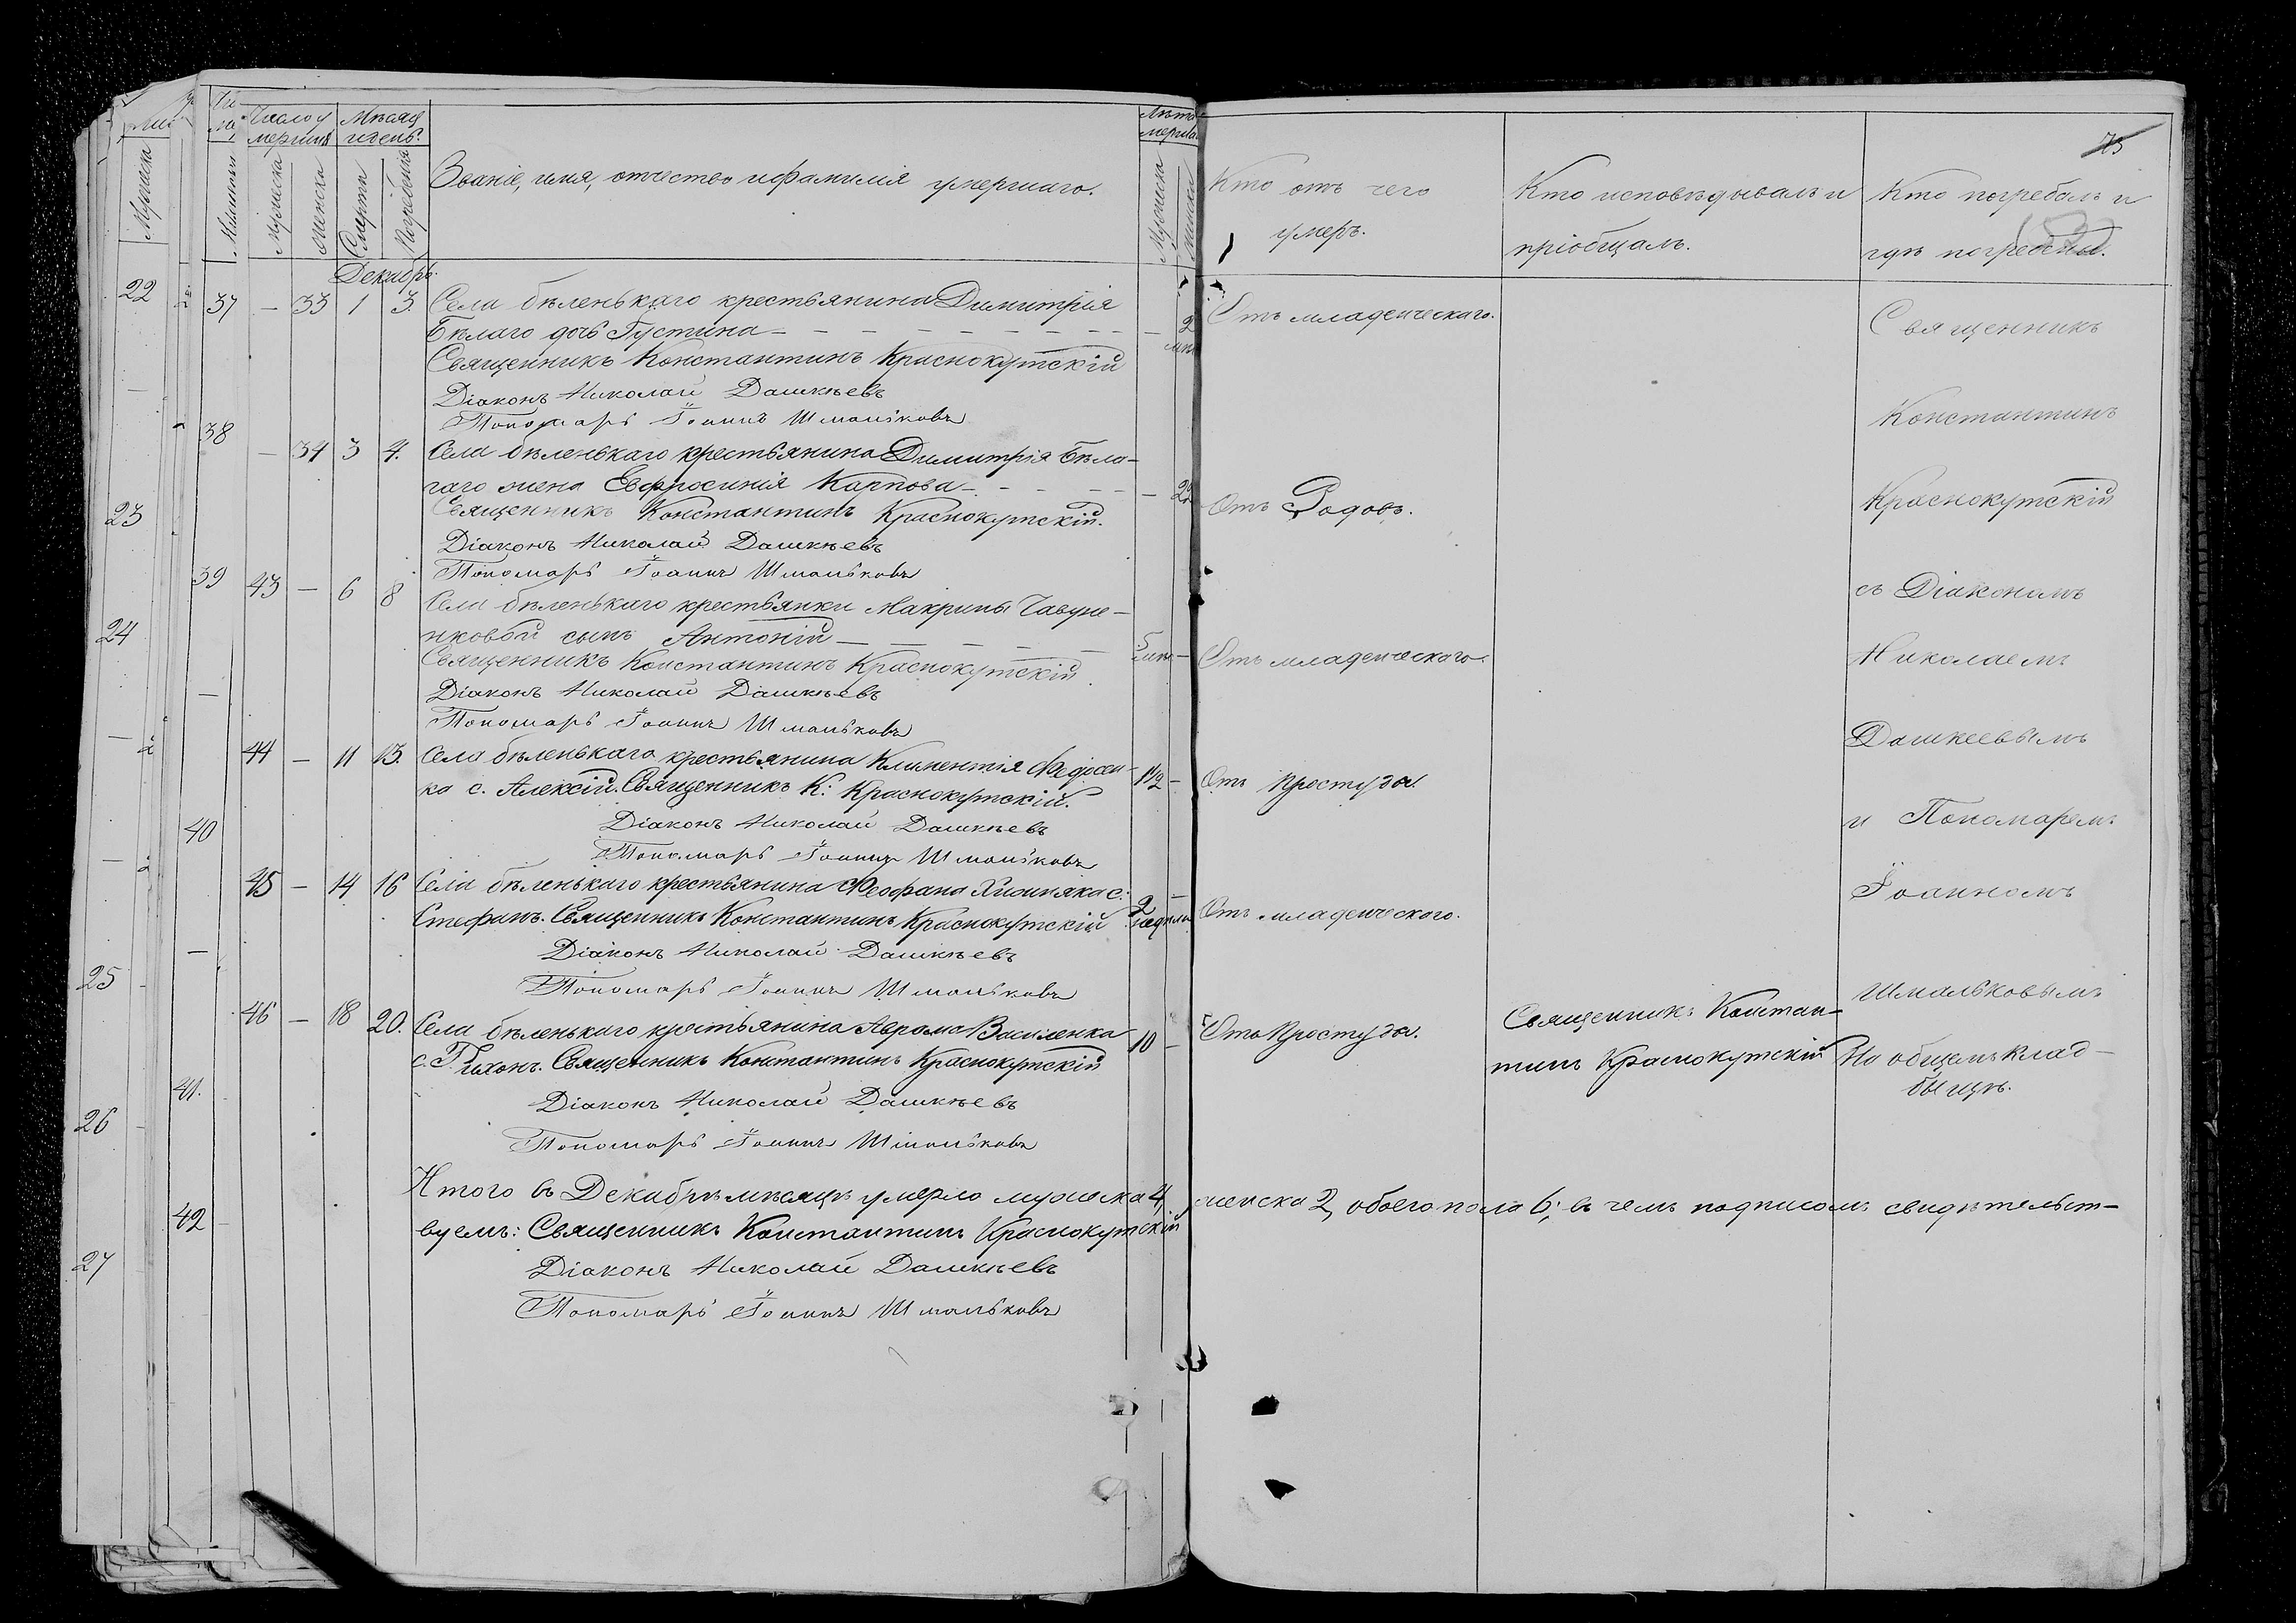 Число умершихъ
Мѣсяцъ и день.
Мужеска
Женска
Смерти
Погребенія
Званіе, имя, отчество и фамилія умершаго.
Лѣта умершаго
Мужеска
Женска
Кто отъ чего
умеръ.
Кто исповѣдывалъ и
пріобщалъ.
Кто погребалъ и
гдѣ погребены.
75
Декабрь.
— 33 1 3. Села бѣленькаго крестьянина Димитрія
Бѣлаго дочь Густина — 2 Отъ младенческаго.
Священникъ Константинъ Краснокутскій
Діаконъ Николай Дашкѣевъ
Пономарь Іоаннъ Шмальковъ
— 34 3 4. Села бѣленькаго крестьянина Димитрія Бѣла-
гаго жена Евфросинія Карпова — 22 Отъ Родовъ.
Священникъ Константинъ Краснокутскій.
Діаконъ Николай Дашкѣевъ
Пономарь Іоаннъ Шмальковъ
43 — 6 8 Села бѣленькаго крестьянки Макрины Чавуне-
нковой сынъ Антоній — Отъ младенческаго.
Священникъ Константинъ Краснокутскій.
Діаконъ Николай Дашкѣевъ
Пономарь Іоаннъ Шмальковъ
44 — 11 13. Села бѣленькаго крестьянина Климентія Федосен-
ка с. Алексій. Священникъ К: Краснокутскій. 1 1/2 — Отъ простуды.
Діаконъ Николай Дашкѣевъ
Пономарь Іоаннъ Шмальковъ
45 — 14 16 Села бѣленькаго крестьянина Феофана Хижняка с:
Стефанъ. Священникъ Константинъ Краснокутскій 2 недѣли Отъ младенческаго.
Діаконъ Николай Дашкѣевъ
Пономарь Іоаннъ Шмальковъ
46 — 18 20. Села бѣленькаго крестьянина Аврама Василенка
с. Тихонъ. Священникъ Константинъ Краснокутскій 10 — Отъ простуды.
Діаконъ Николай Дашкѣевъ
Пономарь Іоаннъ Шмальковъ
Священникъ Констан-
тинъ Краснокутскій
Священникъ
Константинъ
Краснокутскій
съ Діакономъ
Николаемъ
Дашкеевымъ
и Пономаремъ
Іоанномъ
Шмальковымъ
На общемъ клад-
бищѣ.
Итого въ Декабрѣ мѣсяцѣ умерло мужеска 4, женска 2, обоего пола 6; въ чемъ подписомъ свидѣтельст-
вуемъ: Священникъ Константинъ Краснокутскій
Діаконъ Николай Дашкѣевъ
Пономарь Іоаннъ Шмальковъ
Мужеска
22
23
24
25
26
27
37
38
39
40
41.
42